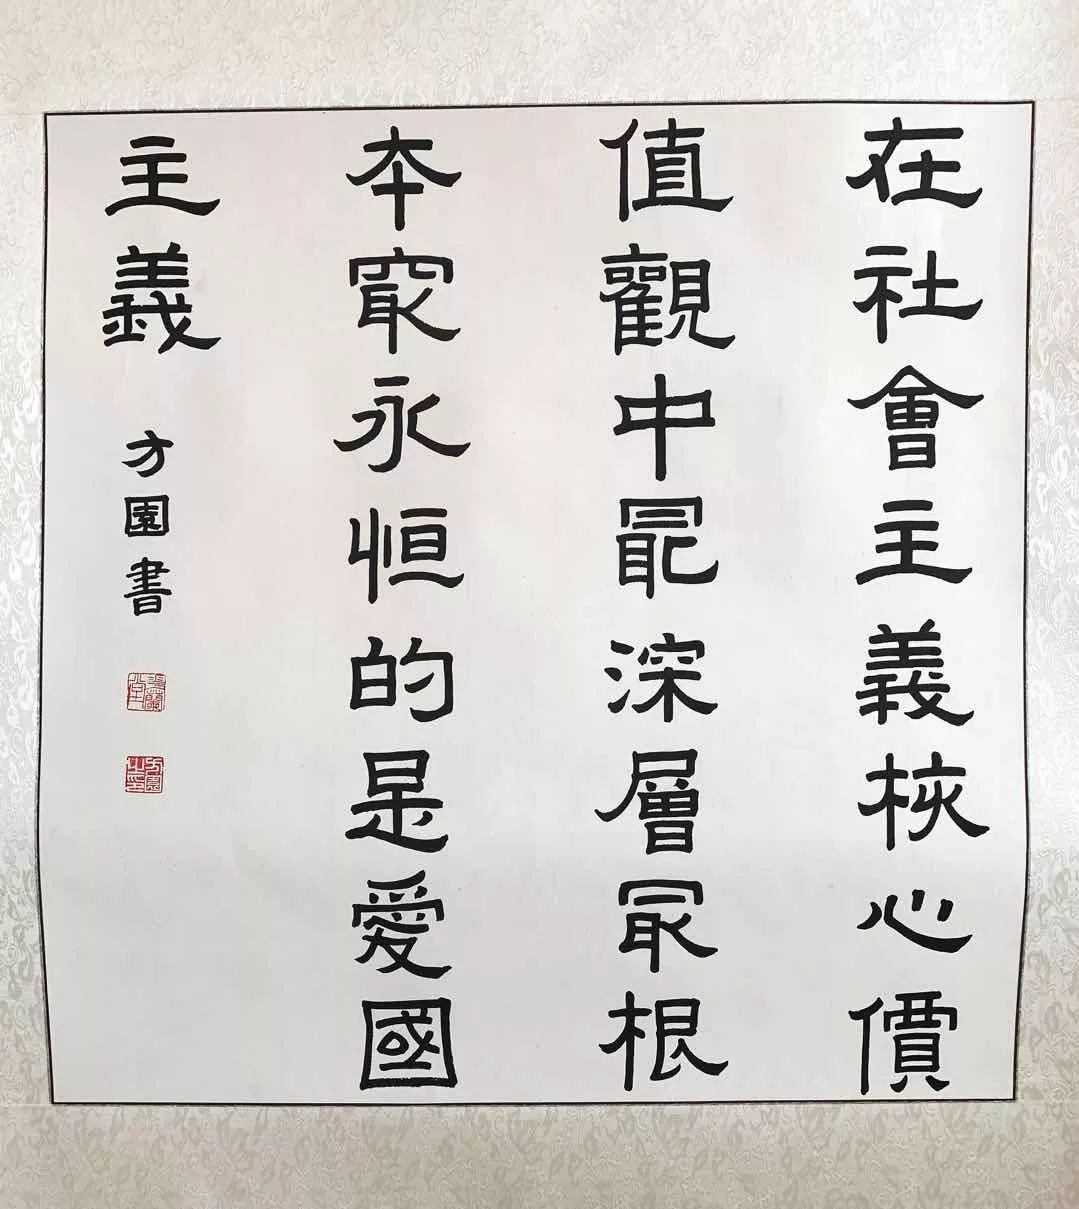 在社會主義核心價
值觀中最深層最根
本最永恒的是愛國
主義
方園書